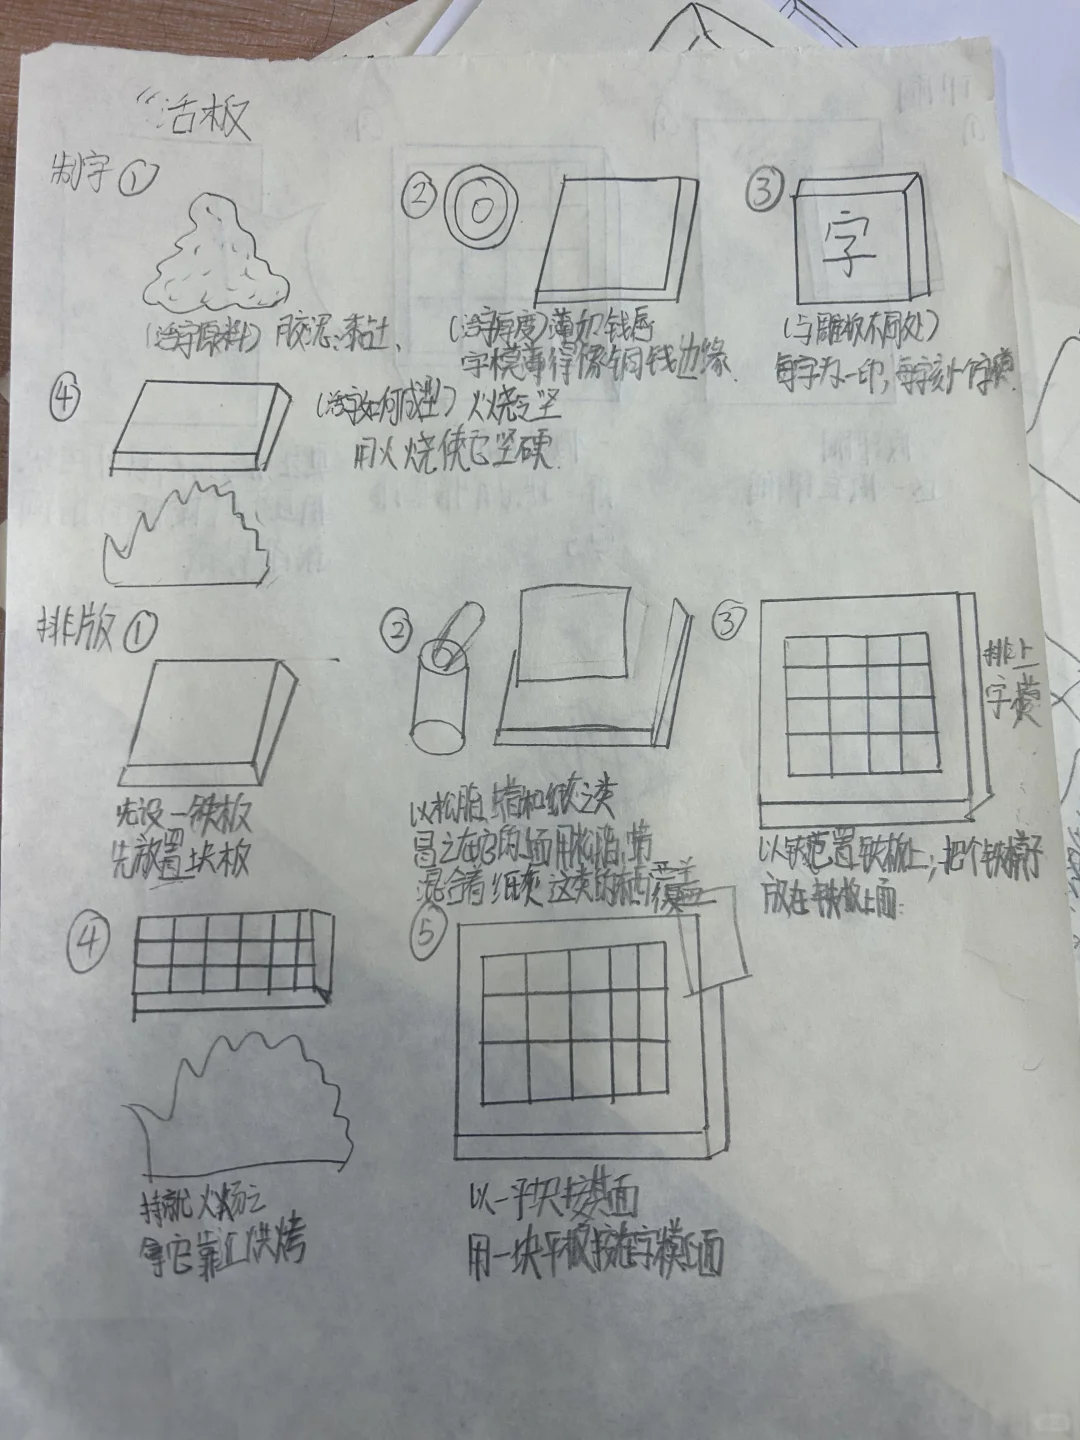 “活板
制字①
②
③
字
(活字原料) 胶泥:黏土、
(活字厚度)薄如钱唇
字模薄得像铜钱边缘.
(与雕板不同处)
每字为一印,每字刻个字模.
④
(活字如何成型) 火烧令坚
用火烧使它坚硬.
排版①
②
③
排上
字模
先设一铁板
先放置块板
以松脂、蜡和纸灰之类
冒之在它的上面用松脂、蜡
混合着纸灰这类的东西覆盖
以铁范置铁板上;把个铁框子
放在铁板上面.
④
⑤
持就火炀之
拿它靠近烘烤
以一平板按其面
用一块平板按在字模上面